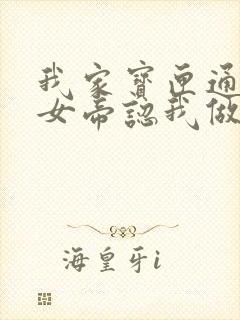 我家寶匣通
女帝認我做
海皇牙i